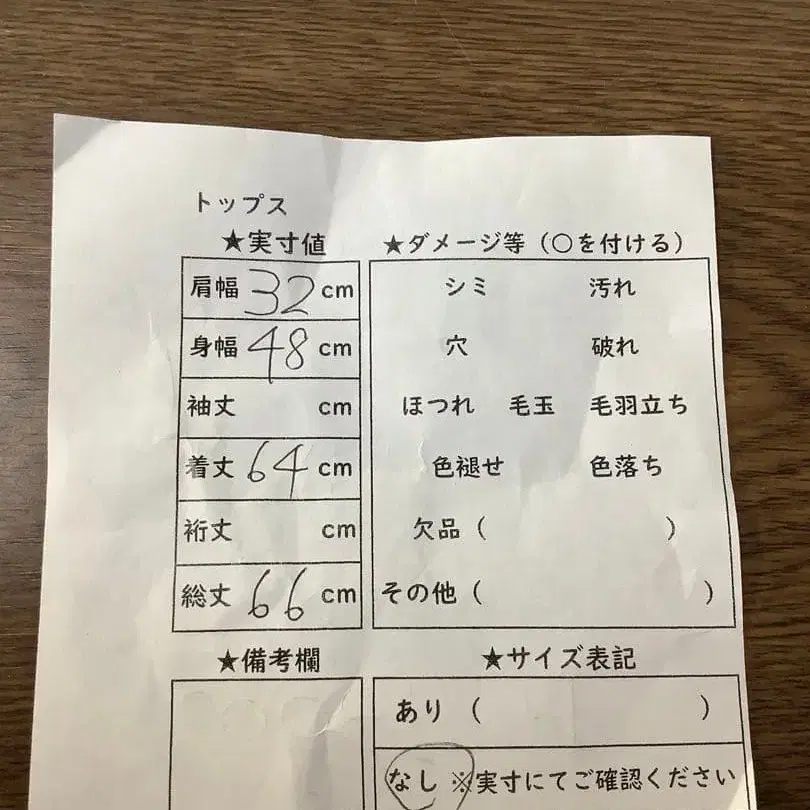 トップス
★実寸値
肩幅 32 cm
身幅 48 cm
袖丈 cm
着丈 64 cm
裄丈 cm
総丈 66 cm
★ダメージ等（○を付ける）
シミ 汚れ
穴 破れ
ほつれ 毛玉 毛羽立ち
色褪せ 色落ち
欠品（ ）
その他（ ）
★備考欄
★サイズ表記
あり（ ）
なし ※実寸にてご確認ください